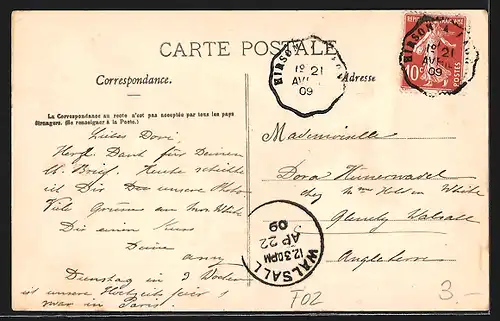 CARTE POSTALE
HIRSON
1º 21
AVRIL
09
FRANÇAISE
10
POSTES
HIRSON
1º 21
09
Correspondance.
Adresse
La Correspondance au recto n'est pas acceptée par tous les pays
étrangers. (Se renseigner à la Poste.)
Liebes Dori!
Herzl. Dank für Deinen
lb. Brief. Heute schicke
ich Dir unsere Photo
Viele Grüsse an Mrs White
Dir einen Kuss
Deine
Anny
Dienstag in 2 Wochen
ist unsere Hochzeitsfeier!
war in Paris.
Mademoiselle
Dora Hunerwadel
chez Mme White
Walsall
Angleterre
WALSALL
12.30PM
AP 22
09
F02
3.-